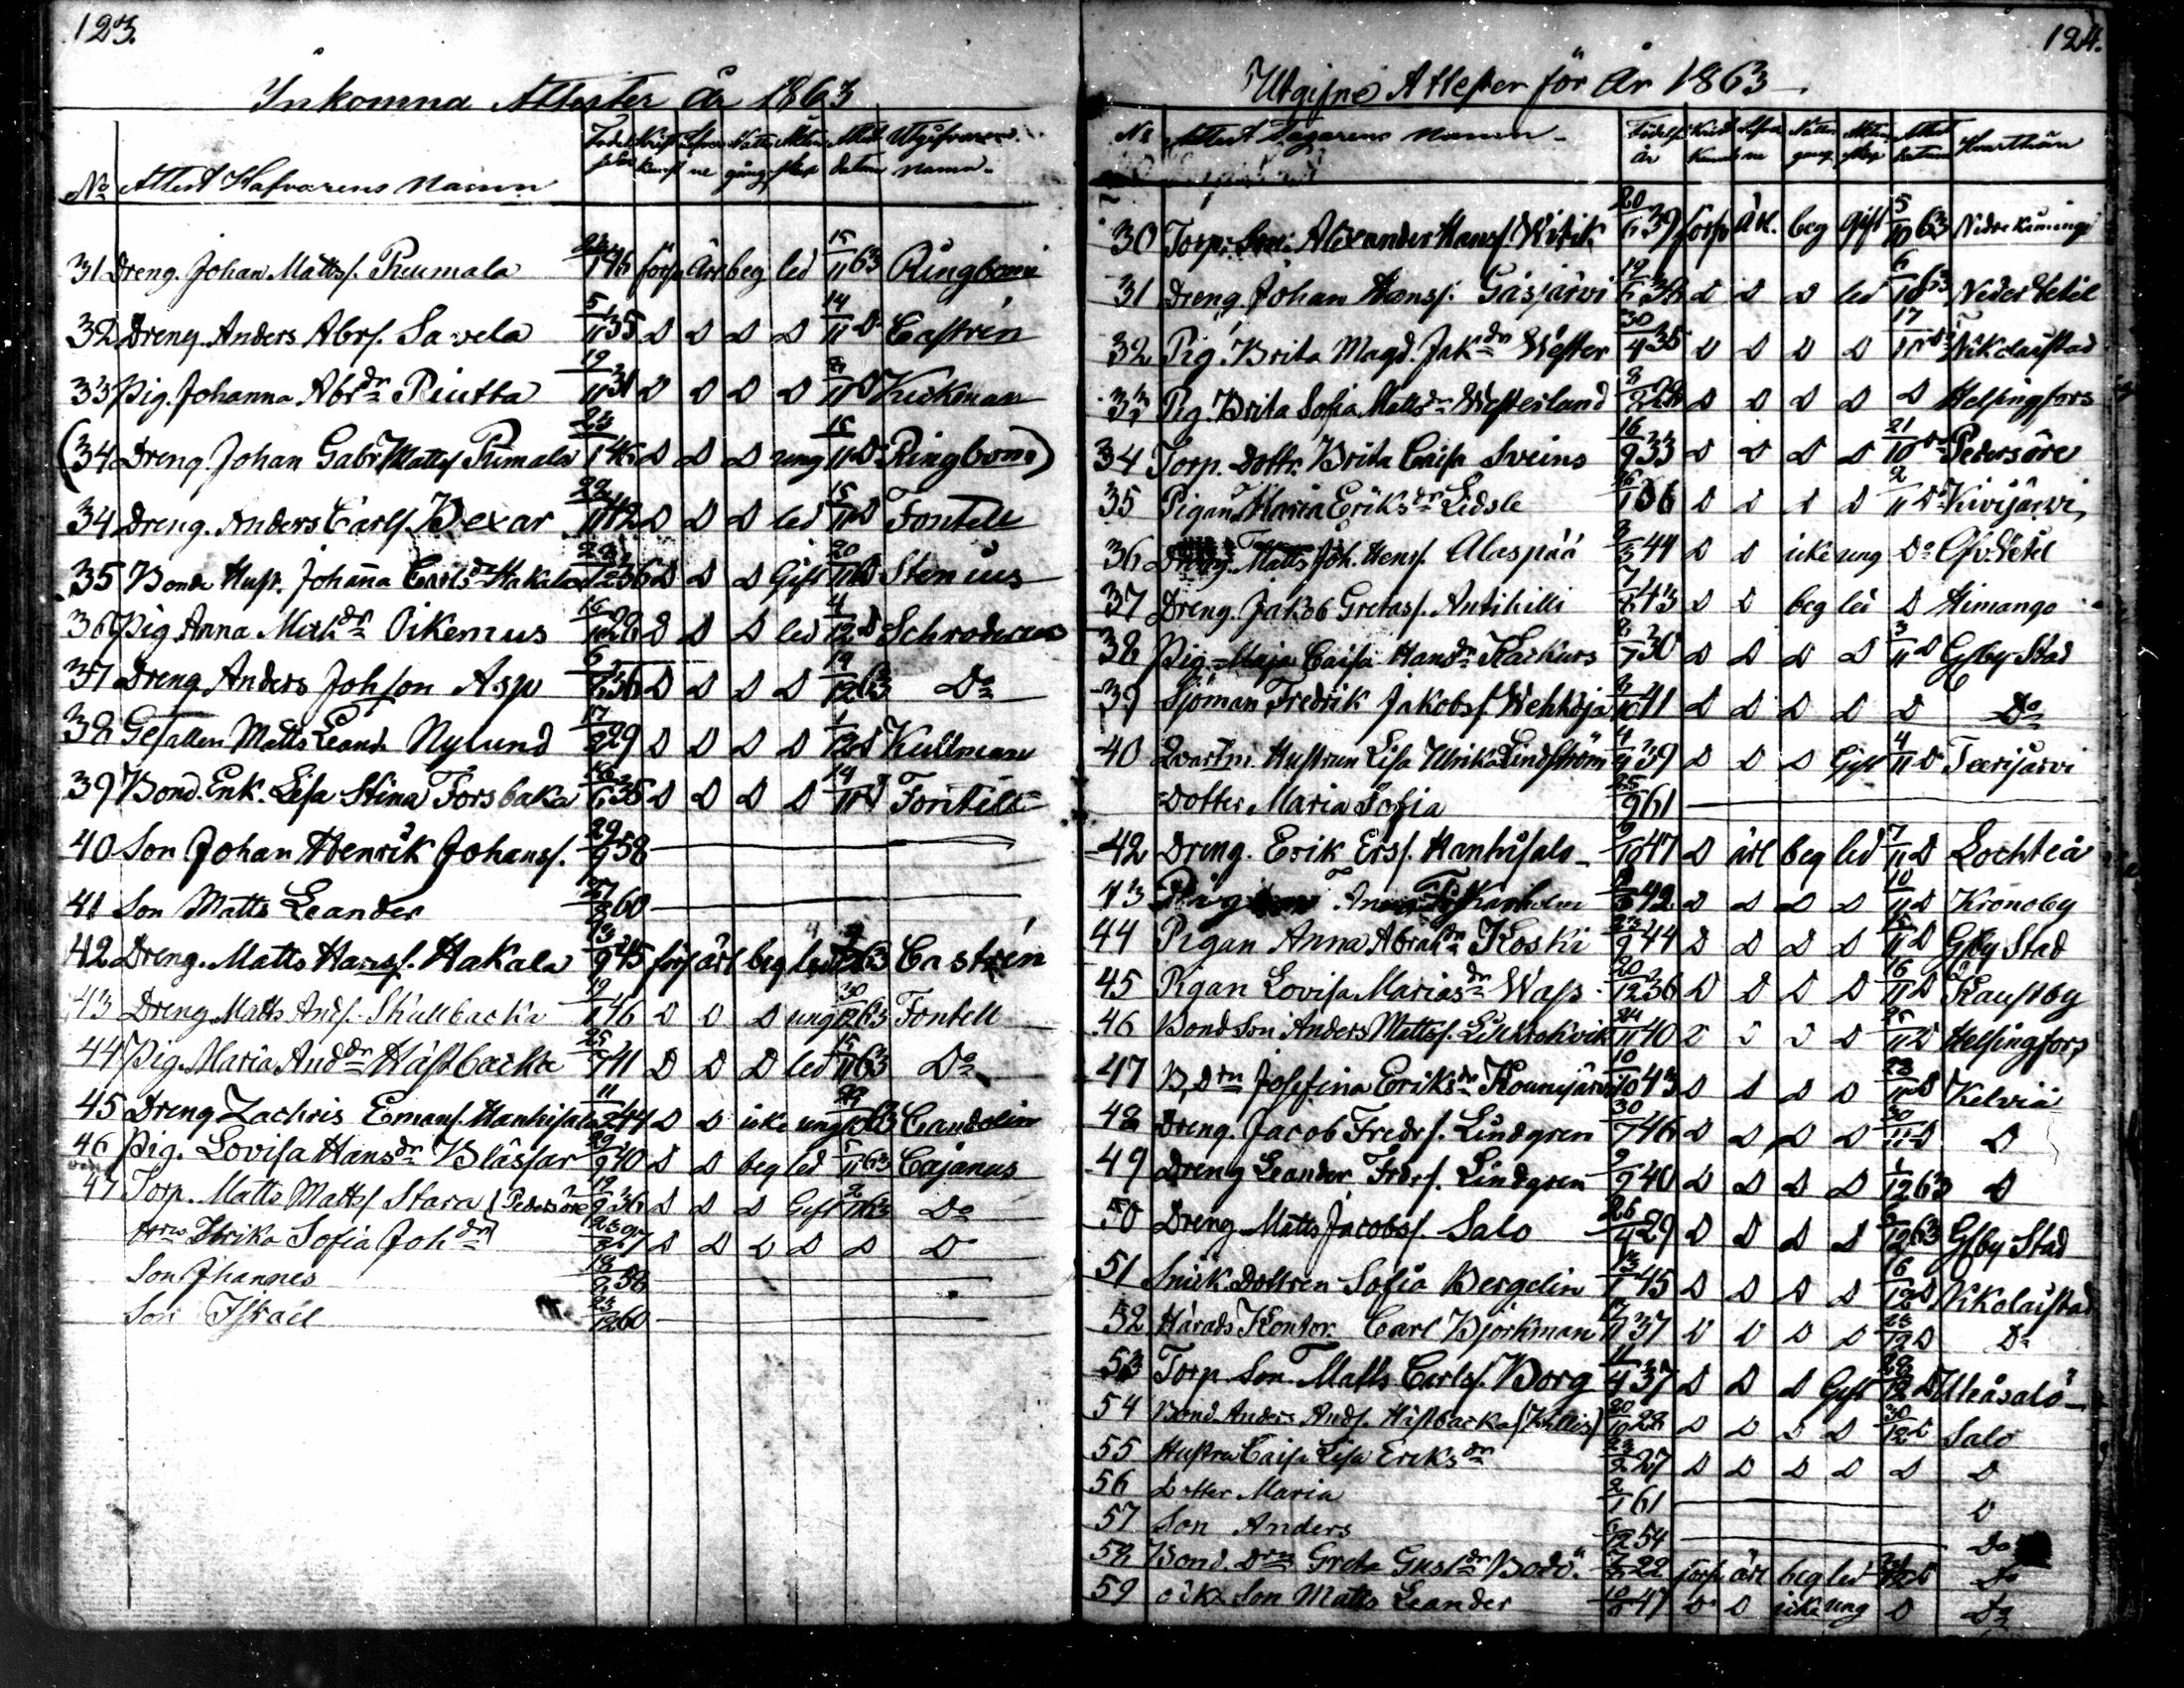 123.
Inkomna Attester år 1863
No Attest Hafvarens Namn Födel. Krist. Lefver Natt Äkten Attest Utgifvarens
kunsk ne gång skap datum namn
31 Dreng. Johan Mattss. Peumala 1 46 förs ärl beg led 15/11 63 Ringbom
32 Dreng. Anders Abrs. Savela 5/11 35 D D D D 14/11 D Castrén
33 Pig. Johanna Abrdr Piutta 19/11 31 D D D D D Kickman
(34 Dreng. Johan Gabr Mattss Pumala 23/1 46 D D D ung 15/11 D Ringbom)
34 Dreng. Anders Carls. Bexar 22/11 42 D D D led 15/11 D Fontell
35 Bonde Hust. Johanna Carlsdr Hakala 36 D D D Gift 20/11 D Stenius
36 Pig Anna Mickdr Oikemus 16/10 28 D D D led 4/12 D Schroderus
37 Dreng Anders Johsson Asp 6/6 36 D D D D 19/12 63 Do
38 Gesällen Matts Leand. Nylund 17/2 29 D D D D 1/12 D Kullman
39 Bond. Enk. Lisa Stina Forsbaka 16/6 35 D D D D 14/11 D Fontell
40 Son Johan Henrik Johanss. 29/9 58
41 Son Matts Leander 60
42 Dreng. Matts Hanss. Hakala 13/9 45 förs ärl beg led 63 Castrén
43 Dreng Matts Ands. Skullbacka 19/1 46 D D D ung 30/12 63 Fontell
44 Pig. Maria Anddr Hästbacka 25/7 41 D D D led 15/11 63 Do
45 Dreng Zachris Emans. Hanhisalo 11/2 44 D D icke ung 63 Candelin
46 Pig. Lovisa Hansdr Blässar 29/9 40 D D beg led 5/11 63 Cajanus
47 Torp. Matts Matts Stara (Pedersöre 19/9 36 D D D Gift 2/11 63 Do
Hrika Sofia Johdr 27 D D D D D D
Son Jhannes 18/2 58
Son Israel 23/12 60
124.
Utgifne Attester för År 1863
No Attest Tagarens Namn Födelse Krist Lefver Natt Äkten Attest Hvarthän
år kunsk ne gång skap datum
30 Torp. Son. Alexander Hanss. Witik 20/6 39 förs ärl. beg Gift 5/10 63 Nedrekiminge
31 Dreng Johan Hanss. Gåsjärvi 19/6 38 D D D led 6/10 63 Neder Vetil
32 Pig. Brita Magd. Jakdr Wester 30/4 35 D D D D 17/10 Do Nikolaistad
33 Pig. Brita Sofia Mattsdr Westerlund 8/2 28 D D D D D Helsingfors
34 Torp. Dottr. Brita Caisa Sveins 16/9 33 D D D D 21/10 Do Pedersöre
35 Pigan Maria Eriksdr Lidsle 26/1 36 D D D D 2/11 D Kivijärvi
36 Dreng. Matts Joh. Hens. Alaspää 8/3 44 D D icke ung Do Öfv. Vetel
37 Dreng. Jakob Gretass. Antihilli 7/6 43 D D beg led D Himango
38 Pig. Maja Caisa Handr Karhurs 2/7 30 D D D D 3/11 D Glby Stad
39 Sjöman Fredrik Jakobs. Wehhoja 41 D D D D D Do
40 Qvartm. Hustrun Lisa Ulrika Lindström 4/4 39 D D D Gift 4/11 D Teerijärvi
Dotter Maria Sofia 25/9 61
42 Dreng. Erik Erss. Hanhisalo 9/10 47 D ärl beg led 7/11 D Lochteå
43 Karlholm 42 D D D D 10/11 D Kronoby
44 Pigan Anna Abrahdr Koski 23/9 44 D D D D 15/11 D Glby Stad
45 Pigan Lovisa Mariasdr Wass 20/12 36 D D D D 16/11 D Kaustby
46 Bond Son Anders Mattss. 24/11 40 D D D D 25/11 D Helsingfors
47 B, Drn Josefina Eriksdr 10/10 43 D D D D 28/11 D Kelviå
48 Dreng. Jacob Fredrs. Lindgren 30/7 46 D D D D 30/11 D D
49 Dreng Leander Fredrs. Lindgren 9/7 40 D D D D 1/12 63 D
50 Dreng Matts Jacobss. Salo 26/4 29 D D D D 6/12 63 Glby Stad
51 Snick. Dottren Sofia Bergelin 13/1 45 D D D D 16/12 D Nikolaistad
52 Härads Kontor. Carl Björkman 17/11 37 D D D D 23/12 D Do
53 Torp. Son. Matts Carls. Borg 11/4 37 D D D Gift 28/12 D Uleåsalo
54 Bond. Anders Ands. Hästbacka (Kallis) 20/10 28 D D D D 30/12 D Salo
55 Hustru Caisa Lisa Eriksdr 23/2 27 D D D D D D
56 Dotter Maria 2/1 61 D
57 Son Anders 6/12 54 Do
58 Bond. Drn Greta Gustdr Bodö. 22 förs ärl beg led Do
59 o ikt Son Matts Leander 47 D D icke ung D Do